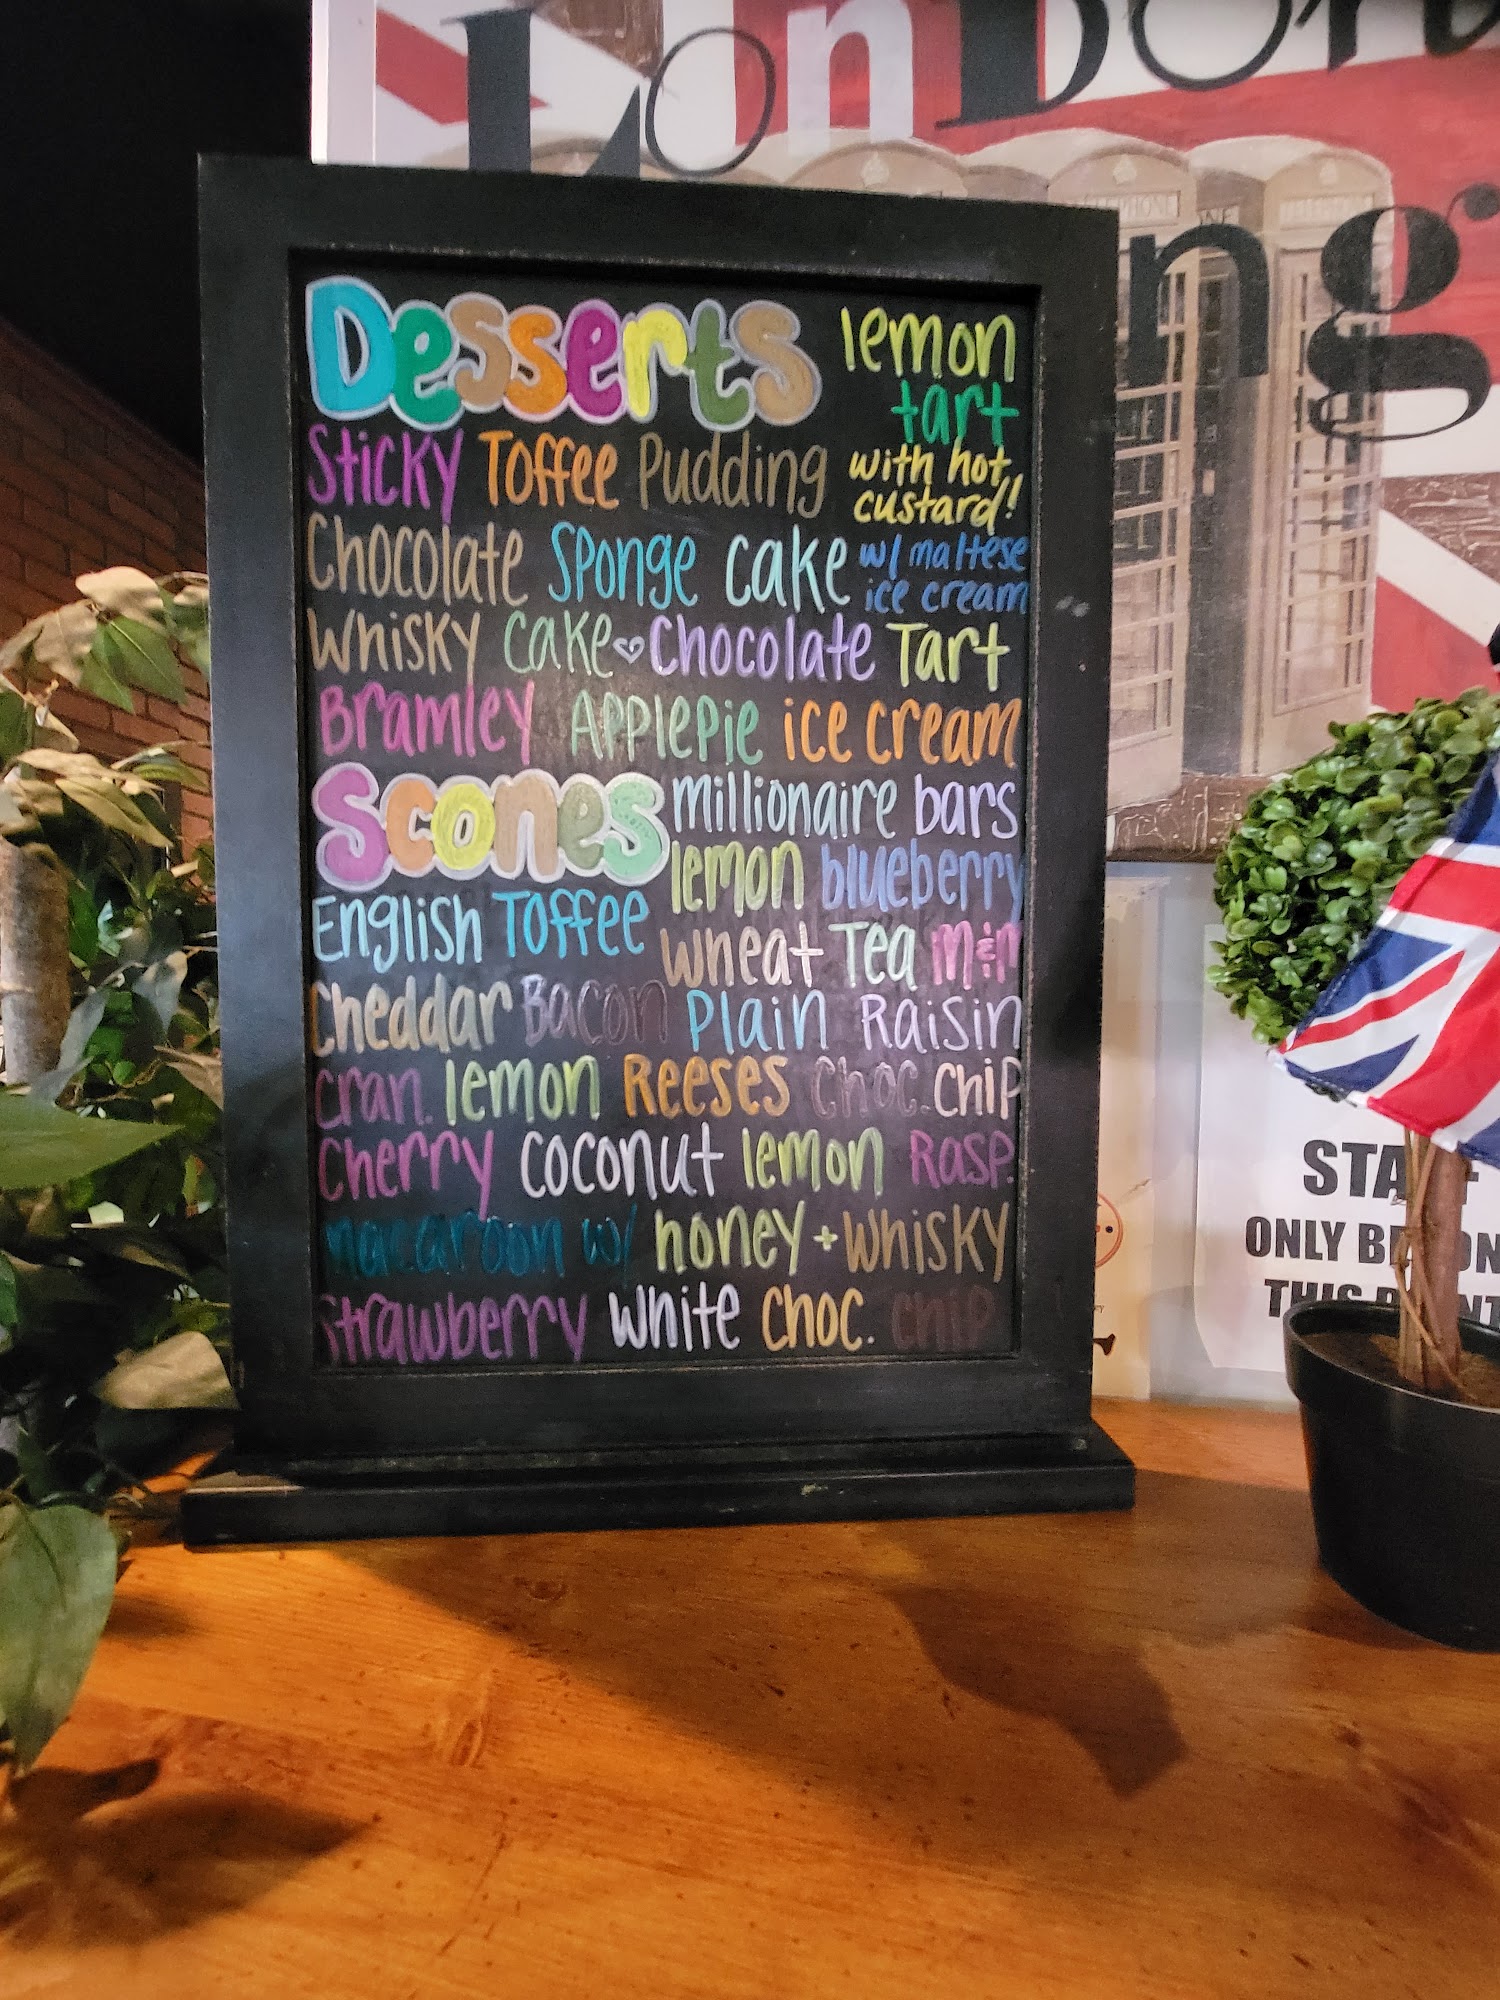 London
ng
TELEPHONE
Desserts
lemon
tart
with hot
custard!
Sticky Toffee Pudding
Chocolate Sponge cake w/ maltese
ice cream
Whisky Cake Chocolate Tart
Bramley Applepie ice cream
Scones
millionaire bars
lemon blueberry
English Toffee
wheat Tea m&m
Cheddar Bacon Plain Raisin
cran. lemon REESES Choc. chip
Cherry coconut lemon Rasp.
macaroon w/ honey + whisky
strawberry white choc. chip
ONLY